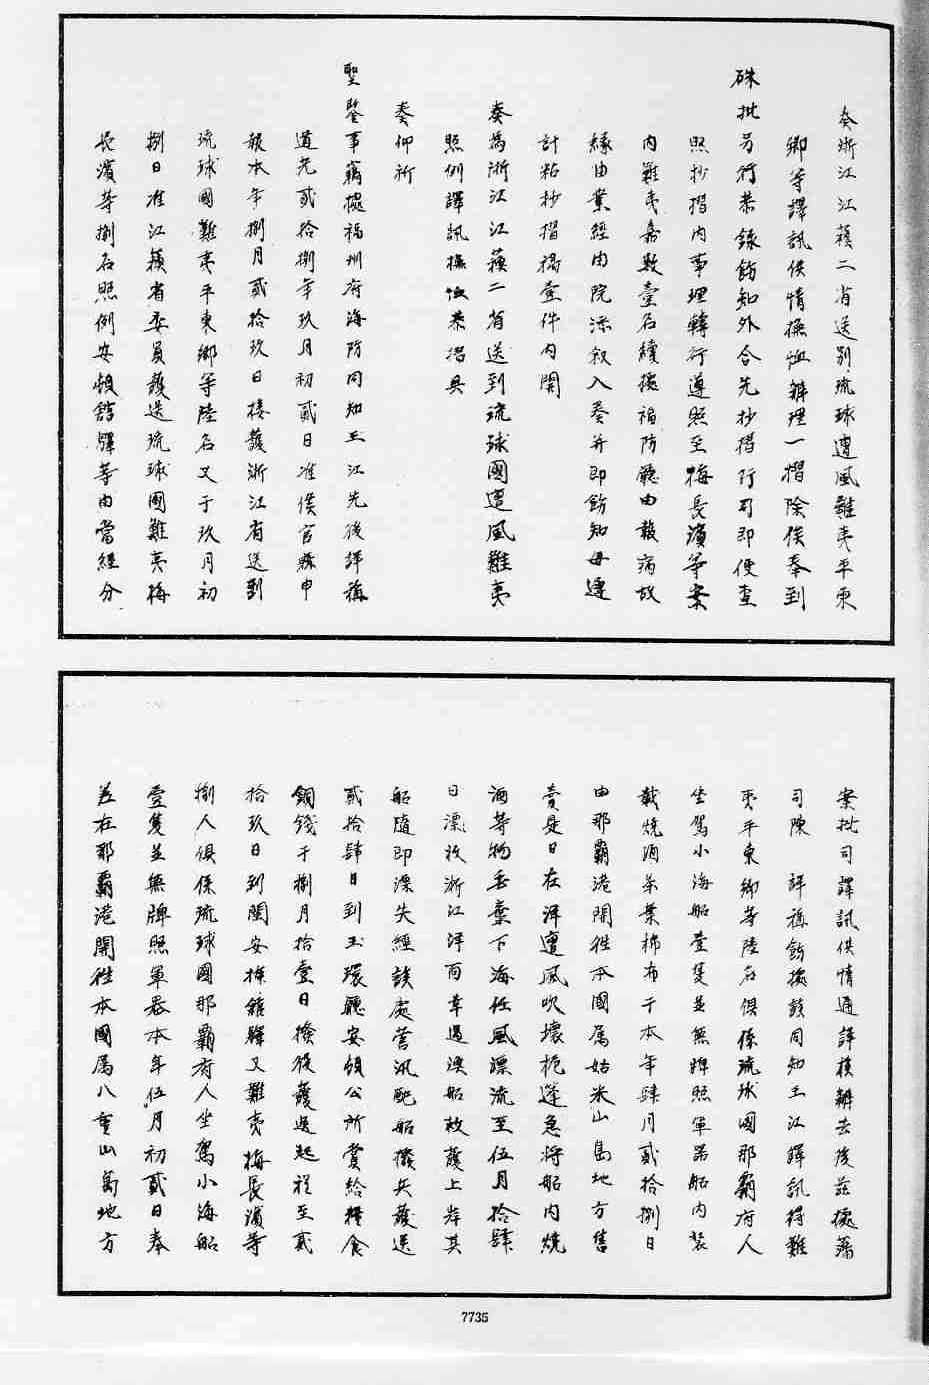 奏浙江江蘇二省送到琉球遭風難夷平東
鄉等譯訊供情撫恤辦理一摺除俟奉到
硃批另行恭錄飭知外合先抄摺行司即便查
照抄摺內事理轉行遵照至梅長濱等案
內難夷嘉數壹名續據福防廳由報病故
緣由業經由院添叙入奏并即飭知毋違
計粘抄摺稿壹件內開
奏為浙江江蘇二省送到琉球國遭風難夷
照例譯訊撫恤恭摺具
奏仰祈
聖鑒事竊據福州府海防同知王江先後詳稱
道光貳拾捌年玖月初貳日准侯官縣申
報本年捌月貳拾玖日接護浙江省送到
琉球國難夷平東鄉等陸名又于玖月初
捌日准江蘇省委員護送琉球國難夷梅
長濱等捌名照例安頓館驛等由當經分
案批司譯訊供情通詳核辦去後茲據藩
司陳 詳稱飭據該同知王江譯訊得難
夷平東鄉等陸名俱係琉球國那霸府人
坐駕小海船壹隻並無牌照軍器船內裝
載燒酒茶葉棉布于本年肆月貳拾捌日
由那霸港開往本國属姑米山島地方售
賣是日在洋遭風吹壞桅蓬急將船內燒
酒等物丟棄下海任風漂流至伍月拾肆
日漂收浙江洋面幸遇漁船救護上岸其
船隨即漂失經該處營汛配船撥兵護送
貳拾肆日到玉環廳安頓公所賞給糧食
銅錢于捌月拾壹日撥役護送起程至貳
拾玖日到閩安插館驛又難夷梅長濱等
捌人俱係琉球國那霸府人坐駕小海船
壹隻並無牌照軍器本年伍月初貳日奉
差在那霸港開往本國属八重山島地方
7735